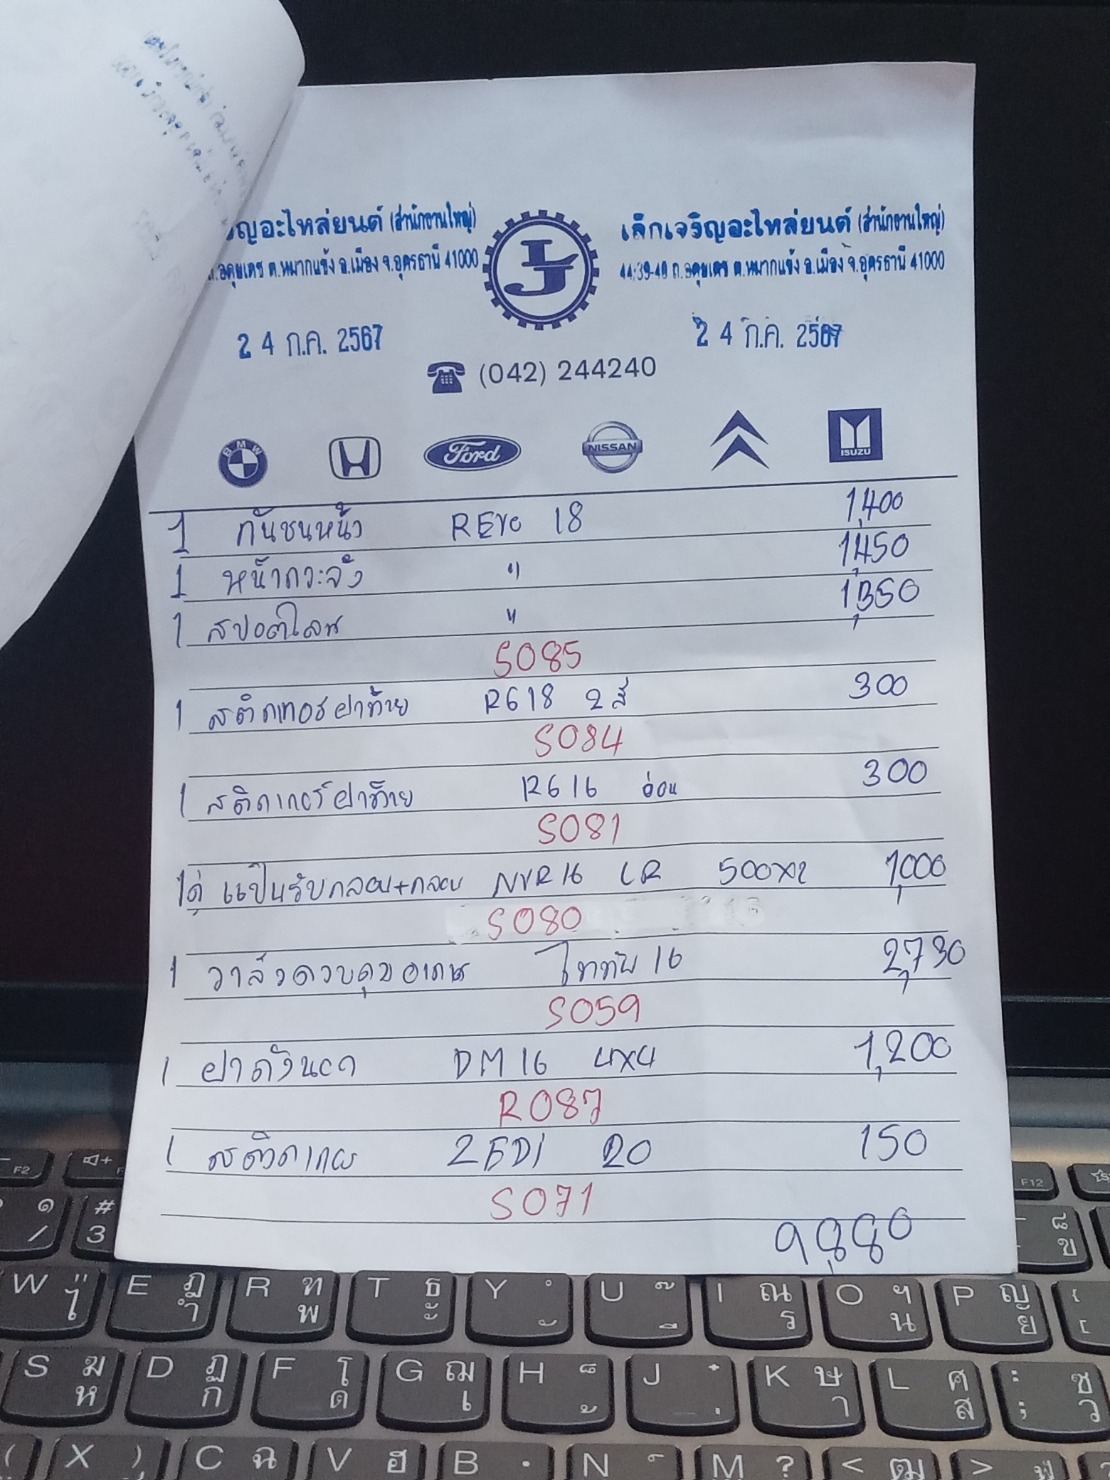 เล็กเจริญอะไหล่ยนต์ (สำนักงานใหญ่)
44,39-40 ถ.อดุมเดช ต.หมากแข้ง อ.เมือง จ.อุดรธานี 41000
ริญอะไหล่ยนต์ (สำนักงานใหญ่)
ถ.อดุมเดช ต.หมากแข้ง อ.เมือง จ.อุดรธานี 41000
LJ
24 ก.ค. 2567
24 ก.ค. 2567
(042) 244240
BMW H Ford NISSAN ISUZU
1 กันชนหน้า REVO 18 1,400
1 หน้ากระจัง " 1,450
1 สปอตไลท " 1,350
S085
1 สติกเกอร์ฝาท้าย RG18 2สี 300
S084
1 สติกเกอร์ฝาท้าย RG16 อ่อน 300
S081
1คู่ แป้นรับกลอน+กลอน NVR16 LR 500x2 1,000
S080
1 วาล์วควบคุม ไททัน 16 2,730
S059
1 ฝาถัง DM16 4x4 1,200
R087
1 สติกเกอ 20 150
S071
9,880
F2
F12
# 3
W E R T Y U I O P
S D F G H J K L
X C V B N M